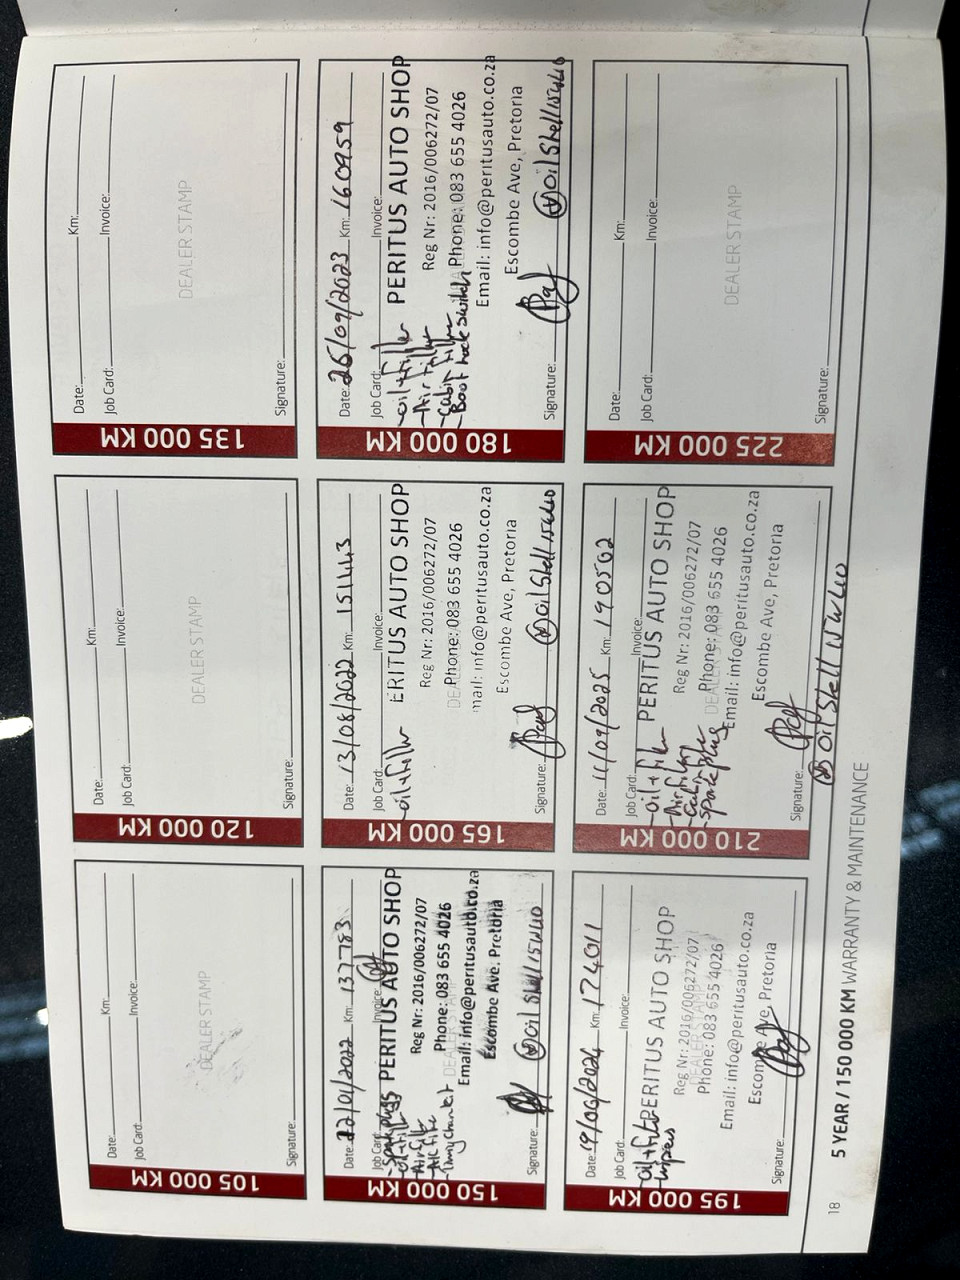 105 000 KM
Date: Km:
Job Card: Invoice:
DEALER STAMP
Signature:
120 000 KM
Date: Km:
Job Card: Invoice:
DEALER STAMP
Signature:
135 000 KM
Date: Km:
Job Card: Invoice:
DEALER STAMP
Signature:
150 000 KM
Date: 22/01/2022 Km: 137783
Job Card: Invoice:
- Spark plugs
PERITUS AUTO SHOP
- oil + filter
Reg Nr: 2016/006272/07
- Air filter
Phone: 083 655 4026
DEALER STAMP
Email: info@peritusauto.co.za
Escombe Ave, Pretoria
Signature: oil Shell 15W40
165 000 KM
Date: 13/08/2022 Km: 151443
Job Card: Invoice:
- oil + filter
ERITUS AUTO SHOP
Reg Nr: 2016/006272/07
Phone: 083 655 4026
mail: info@peritusauto.co.za
Escombe Ave, Pretoria
Signature: oil Shell 15W40
180 000 KM
Date: 26/09/2023 Km: 160959
Job Card: Invoice:
- oil + filter
PERITUS AUTO SHOP
- Air filter
Reg Nr: 2016/006272/07
- Cabin filter
Phone: 083 655 4026
- Boot lock switch
Email: info@peritusauto.co.za
Escombe Ave, Pretoria
Signature: oil Shell 15W40
195 000 KM
Date: 19/06/2024 Km: 174011
Job Card: Invoice:
oil + filter
PERITUS AUTO SHOP
wipers
Reg Nr: 2016/006272/07
DEALER STAMP
Phone: 083 655 4026
Email: info@peritusauto.co.za
Escombe Ave, Pretoria
Signature:
210 000 KM
Date: 11/09/2025 Km: 190562
Job Card: Invoice:
- oil + filter
PERITUS AUTO SHOP
- Air filter
Reg Nr: 2016/006272/07
- Cabin filter
Phone: 083 655 4026
- spark plug
Email: info@peritusauto.co.za
Escombe Ave, Pretoria
Signature:
oil Shell 15W40
225 000 KM
Date: Km:
Job Card: Invoice:
DEALER STAMP
Signature:
18
5 YEAR / 150 000 KM WARRANTY & MAINTENANCE